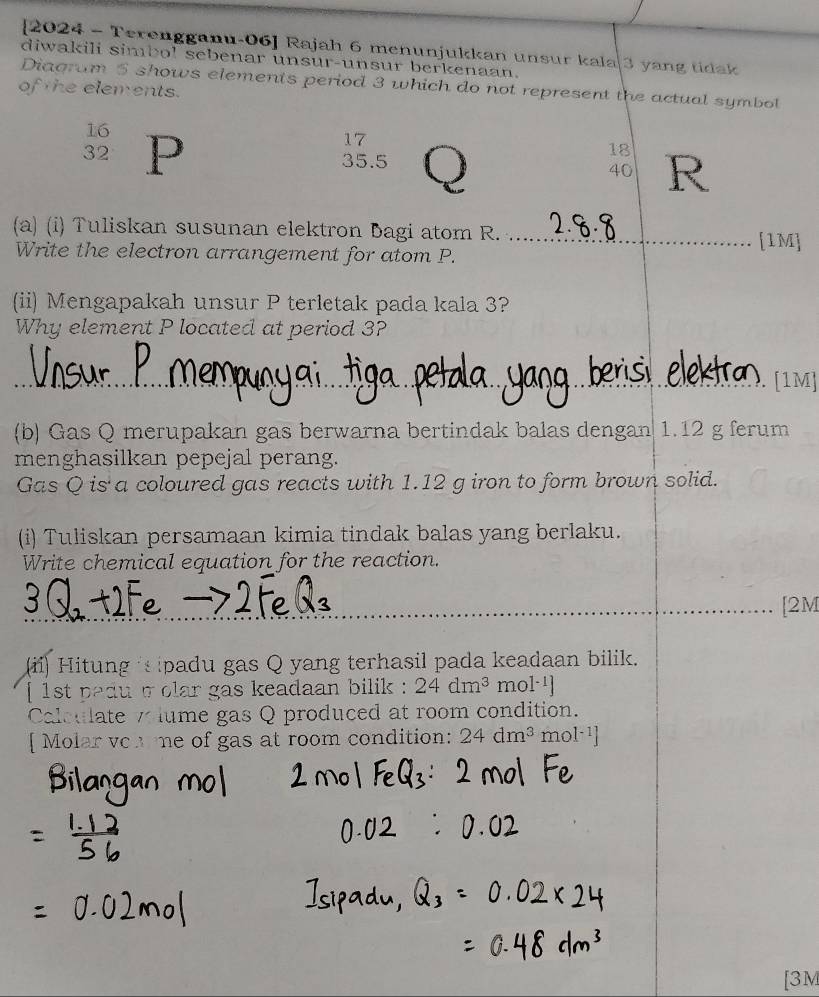 [2024 - Terengganu-06] Rajah 6 menunjukkan unsur kala 3 yang tidak
diwakili simbol sebenar unsur-unsur berkenaan.
Diagram 5 shows elements period 3 which do not represent the actual symbol
of the elements.
16
32 P
17
35.5 Q
18
40 R
(a) (i) Tuliskan susunan elektron bagi atom R. 2.8.8 [1M]
Write the electron arrangement for atom P.
(ii) Mengapakah unsur P terletak pada kala 3?
Why element P located at period 3?
Unsur P mempunyai tiga petala yang berisi elektron. [1M]
(b) Gas Q merupakan gas berwarna bertindak balas dengan 1.12 g ferum
menghasilkan pepejal perang.
Gas Q is a coloured gas reacts with 1.12 g iron to form brown solid.
(i) Tuliskan persamaan kimia tindak balas yang berlaku.
Write chemical equation for the reaction.
3Q₂ + 2Fe → 2FeQ₃ [2M
(ii) Hitung isipadu gas Q yang terhasil pada keadaan bilik.
[ 1st padu molar gas keadaan bilik : 24 dm³ mol⁻¹]
Calculate volume gas Q produced at room condition.
[ Molar volume of gas at room condition: 24 dm³ mol⁻¹]
Bilangan mol 2 mol FeQ₃ : 2 mol Fe
= 1.12/56 0.02 : 0.02
= 0.02 mol Isipadu, Q₃ = 0.02 × 24
= 0.48 dm³
[3M